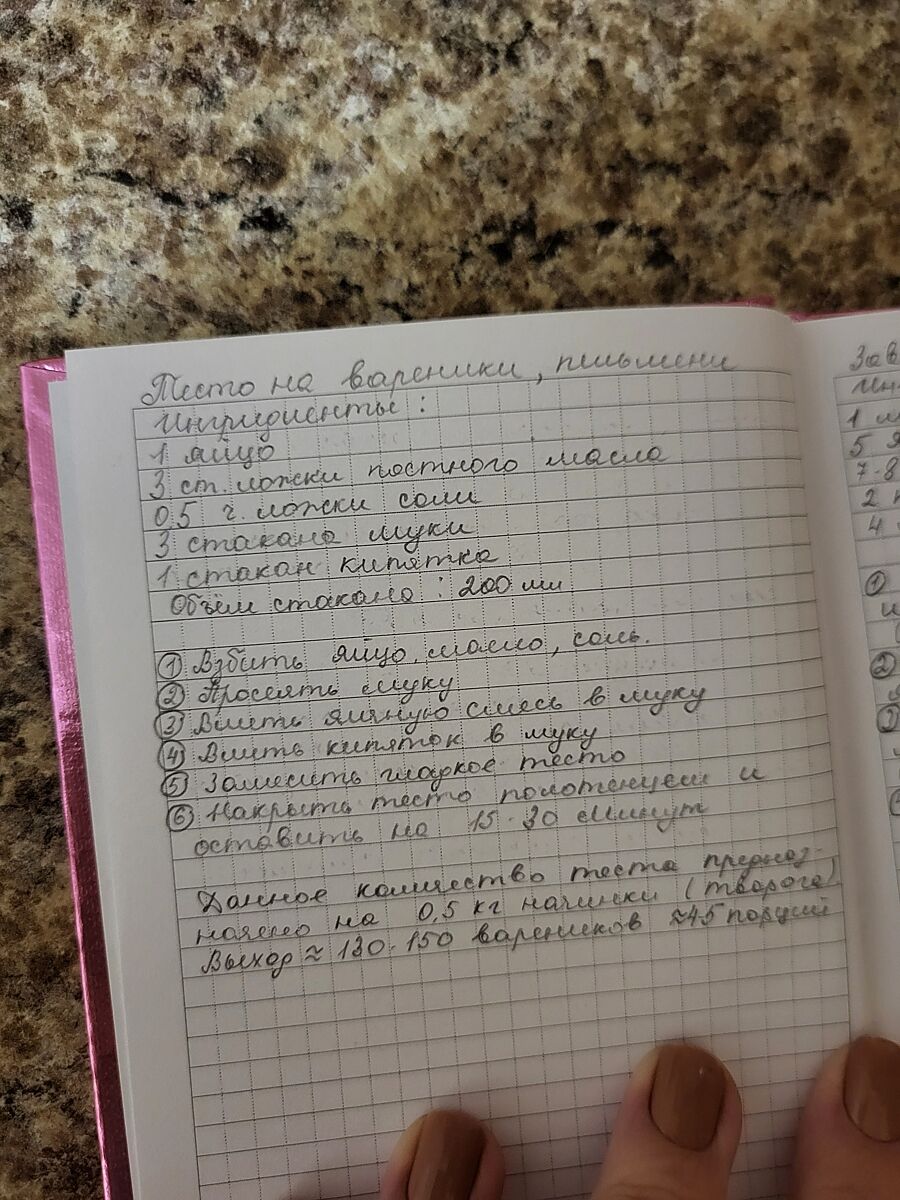 Тесто на вареники, пельмени
Ингридиенты:
1 яйцо
3 ст. ложки постного масла
0,5 ч. ложки соли
3 стакана муки
1 стакан кипятка
Объём стакана: 200 мл
① Взбить яйцо, масло, соль.
② Просеять муку
③ Влить яичную смесь в муку
④ Влить кипяток в муку
⑤ Замесить гладкое тесто
⑥ Накрыть тесто полотенцем и
оставить на 15-30 минут
Данное количество теста предназ-
начено на 0,5 кг начинки (творога)
Выход ≈ 130-150 вареников ≈45 порций
Зав
Ин
1
5 я
7-8
2
4
①
②